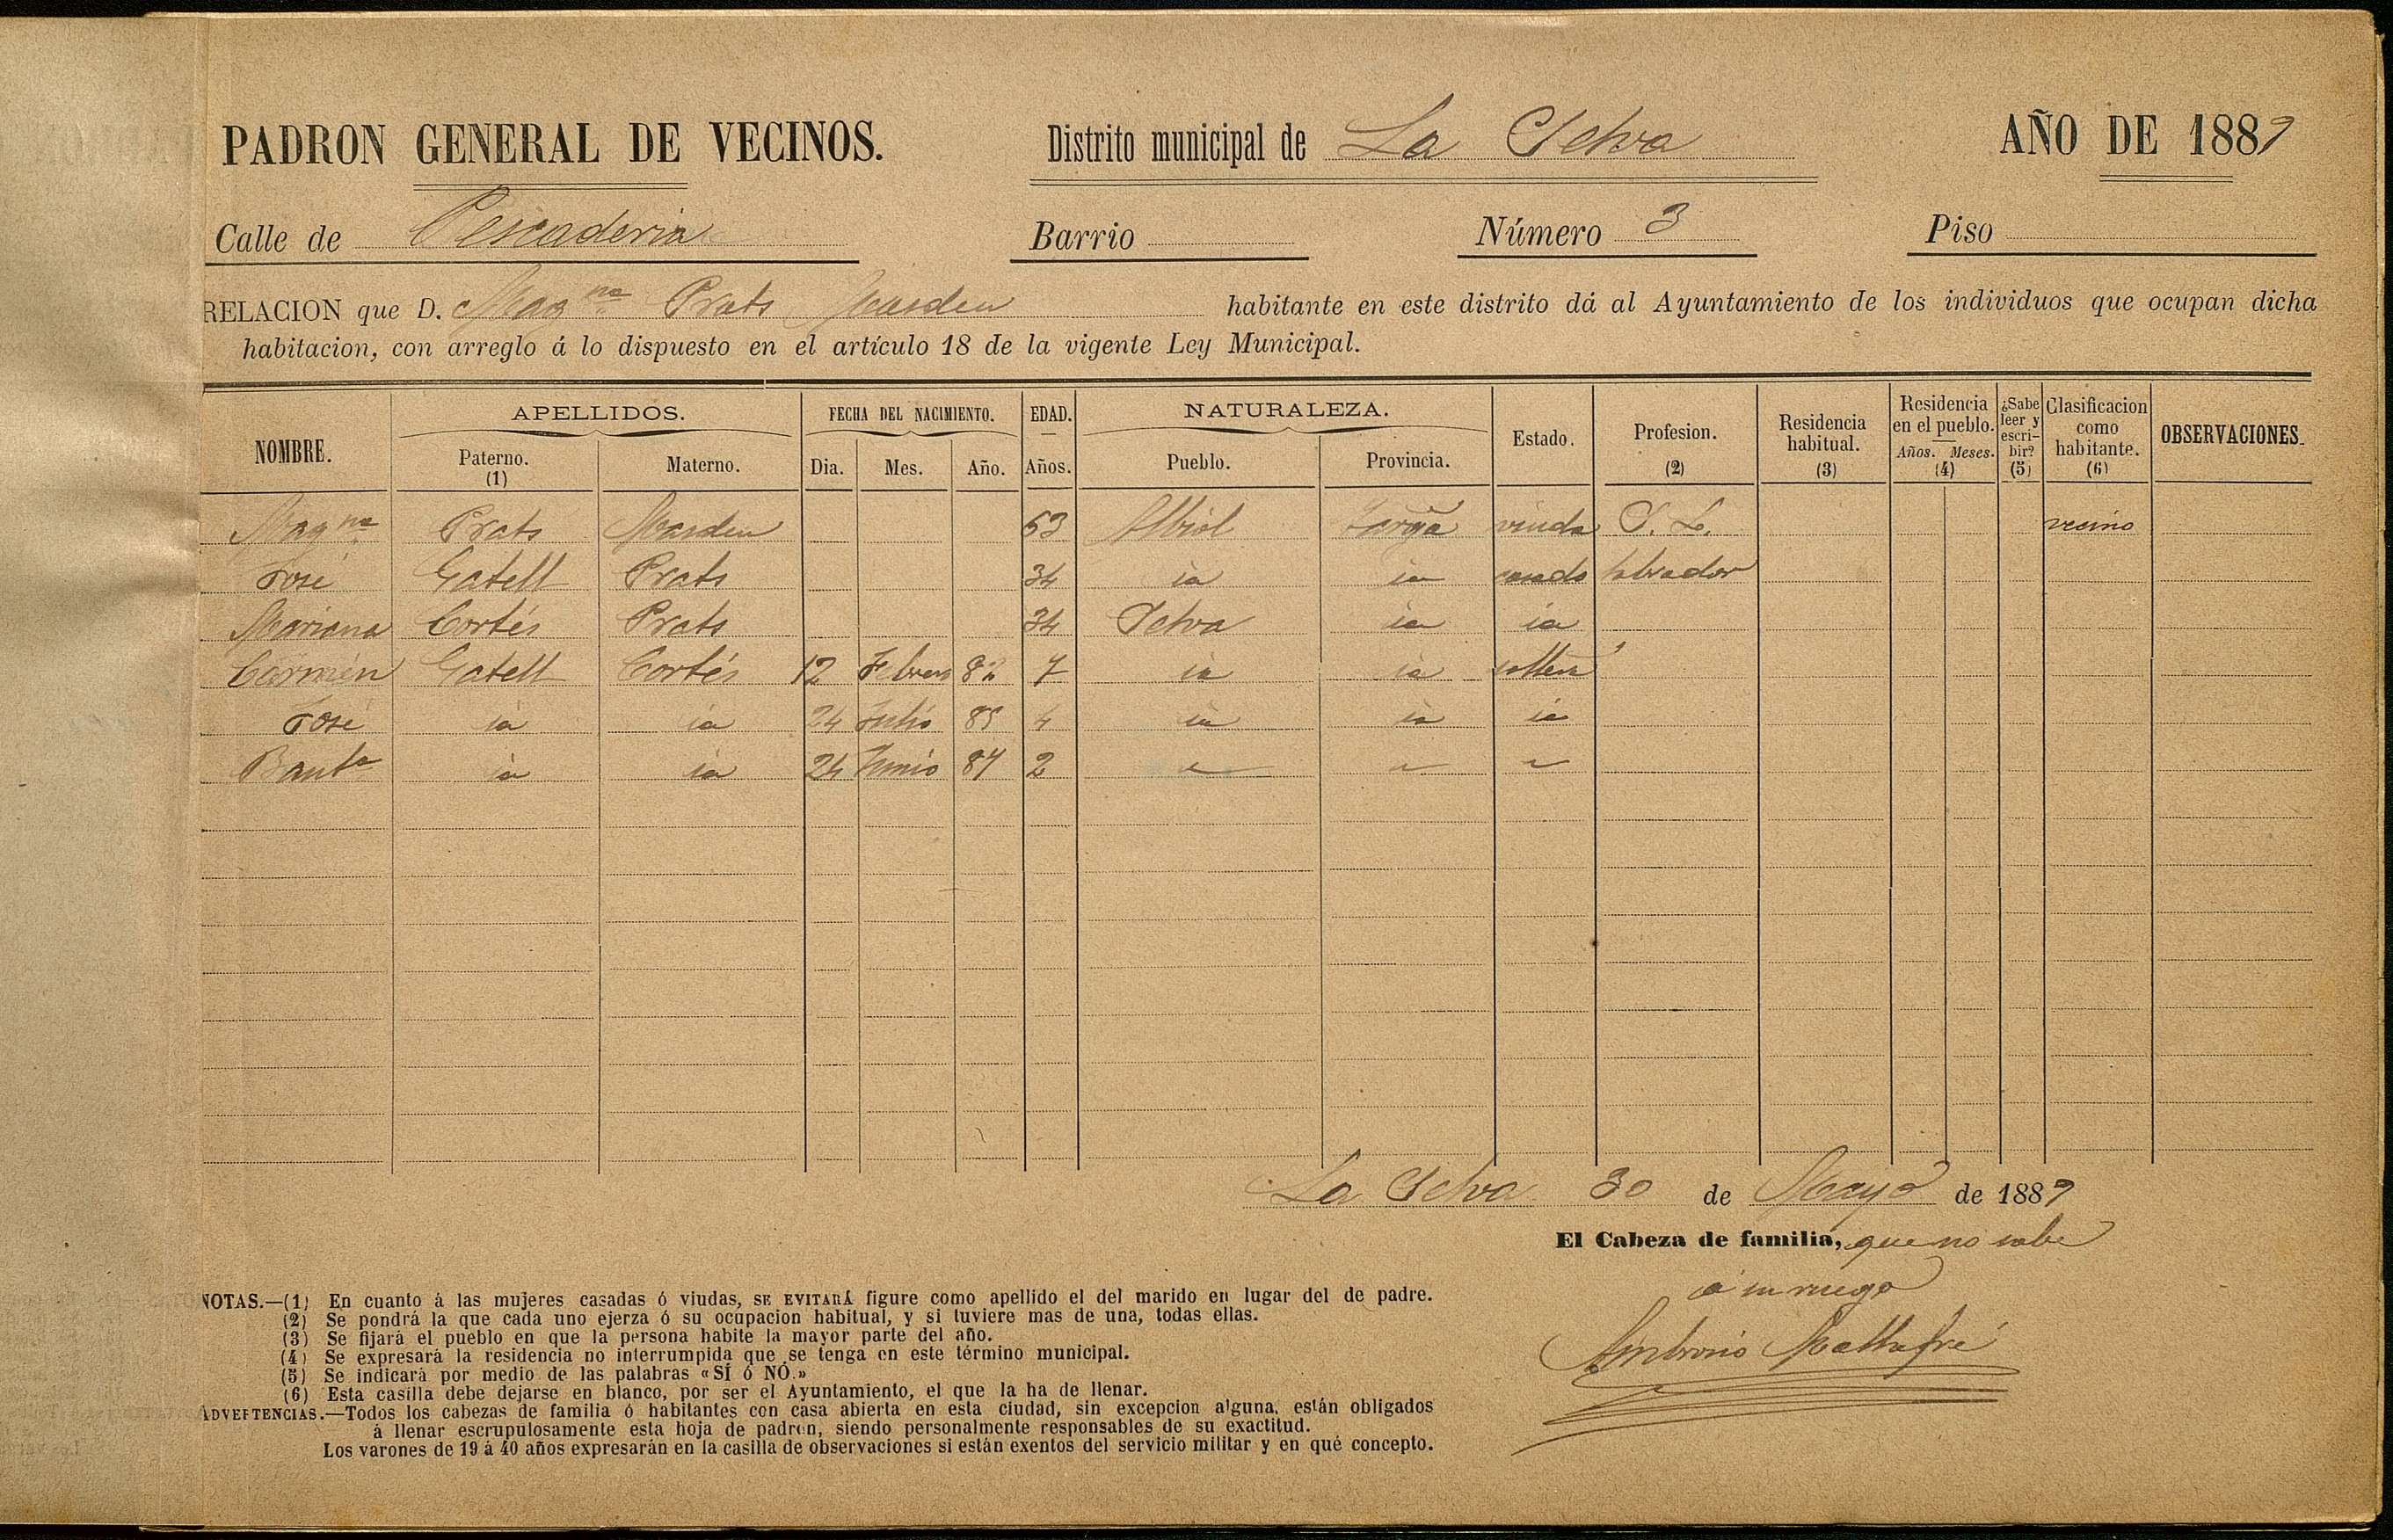 PADRON GENERAL DE VECINOS. Distrito municipal de La Selva AÑO DE 1889
Calle de Pescaderia Barrio Número 3 Piso
RELACION que D. Magna Prats Masdeu habitante en este distrito dá al Ayuntamiento de los individuos que ocupan dicha
habitacion, con arreglo á lo dispuesto en el artículo 18 de la vigente Ley Municipal.
NOMBRE. APELLIDOS. FECHA DEL NACIMIENTO. EDAD. NATURALEZA. Estado. Profesion. Residencia habitual. Residencia en el pueblo. ¿Sabe leer y escribir? Clasificacion como habitante. OBSERVACIONES.
Paterno. Materno. Dia. Mes. Año. Años. Pueblo. Provincia. Años. Meses.
(1) (2) (3) (4) (5) (6)
Magna Prats Masdeu 63 Albiol viuda S. L. vecino
José Gatell Prats 34 id id casado labrador
Mariana Cortés Prats 34 Selva id id
Carmen Gatell Cortés 12 Febrero 82 7 id id soltera
José id id 24 Julio 85 4 id id id
Bauta id id 24 Junio 87 2
La Selva 30 de Mayo de 1889
El Cabeza de familia, que no sabe
á su ruego
Ambrosio Mallafré
NOTAS.—(1) En cuanto á las mujeres casadas ó viudas, SE EVITARÁ figure como apellido el del marido en lugar del de padre.
(2) Se pondrá la que cada uno ejerza ó su ocupacion habitual, y si tuviere mas de una, todas ellas.
(3) Se fijará el pueblo en que la persona habite la mayor parte del año.
(4) Se expresará la residencia no interrumpida que se tenga en este término municipal.
(5) Se indicará por medio de las palabras «SÍ ó NÓ.»
(6) Esta casilla debe dejarse en blanco, por ser el Ayuntamiento, el que la ha de llenar.
ADVERTENCIAS.—Todos los cabezas de familia ó habitantes con casa abierta en esta ciudad, sin excepcion alguna, están obligados
á llenar escrupulosamente esta hoja de padron, siendo personalmente responsables de su exactitud.
Los varones de 19 á 40 años expresarán en la casilla de observaciones si están exentos del servicio militar y en qué concepto.